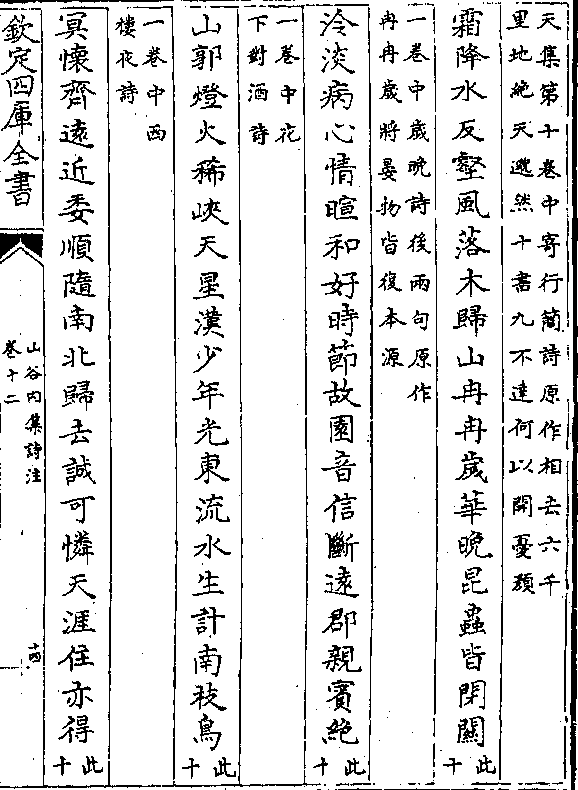 天集第十卷中寄行簡詩原作相去六千
里地絶天邈然十書九不達何以開憂顔
霜降水反壑風落木歸山冉冉歲華晚昆蟲皆閉關此十
一卷中歲晚詩後兩句原作
冉冉歲將晏物皆復本源
泠淡病心情暄和好時節故園音信斷遠郡親賓絶此十
一卷中花
下對酒詩
山郭燈火稀峽天星漢少年光東流水生計南枝鳥此十
一卷中西
樓夜詩
冥懷齊遠近委順隨南北歸去誠可憐天涯住亦得此十
欽定四庫全書
山谷内集詩注
卷十二
十四